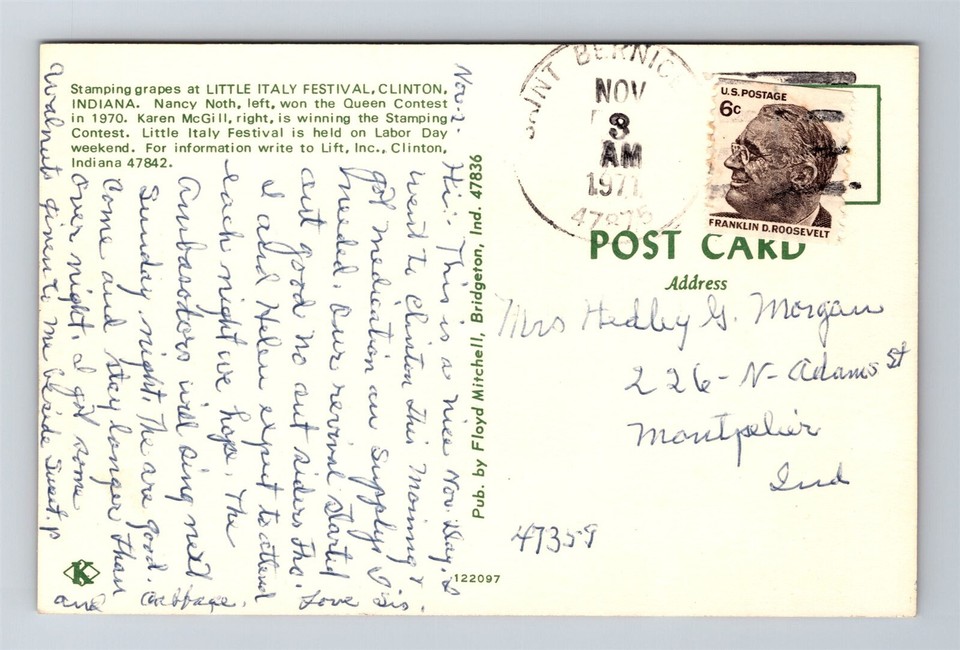 Stamping grapes at LITTLE ITALY FESTIVAL, CLINTON,
INDIANA. Nancy Noth, left, won the Queen Contest
in 1970. Karen McGill, right, is winning the Stamping
Contest. Little Italy Festival is held on Labor Day
weekend. For information write to Lift, Inc., Clinton,
Indiana 47842.
Nov. 2.
Hi: This is a nice Nov. day. I
went to Clinton this morning &
got medication an supplys I
needed. Our revival started
out good no out siders tho.
I and Helen expect to attend
each night we hope. The
Ambassodors will sing next
Sunday night. The are good.
Come and stay longer than
over night. I got some
walnuts given to me beside sweet. p
and cabbage. Love Sis.
K
Pub. by Floyd Mitchell, Bridgeton, Ind. 47836
122097
SAINT BERNICE
NOV
3
AM
1971
47875
U.S. POSTAGE
6c
FRANKLIN D. ROOSEVELT
POST CARD
Address
Mrs Hedley G. Morgan
226-N-Adams St
Montpelier
Ind
47359